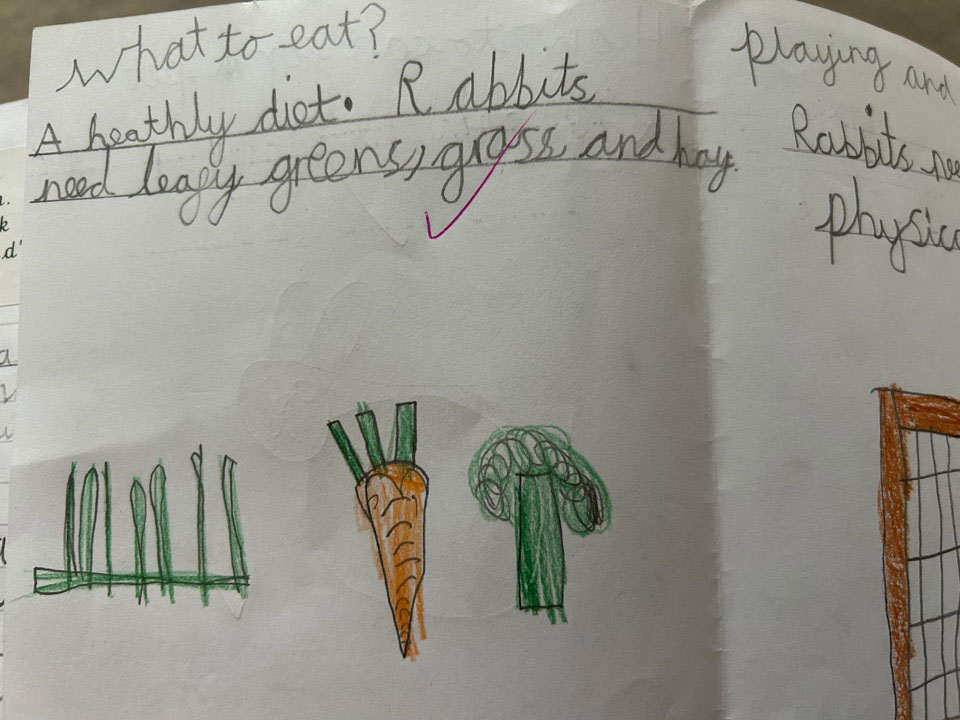 What to eat?
A heathly diet. Rabbits
need leafy greens, grass and hay.
playing and
Rabbits nee
physica